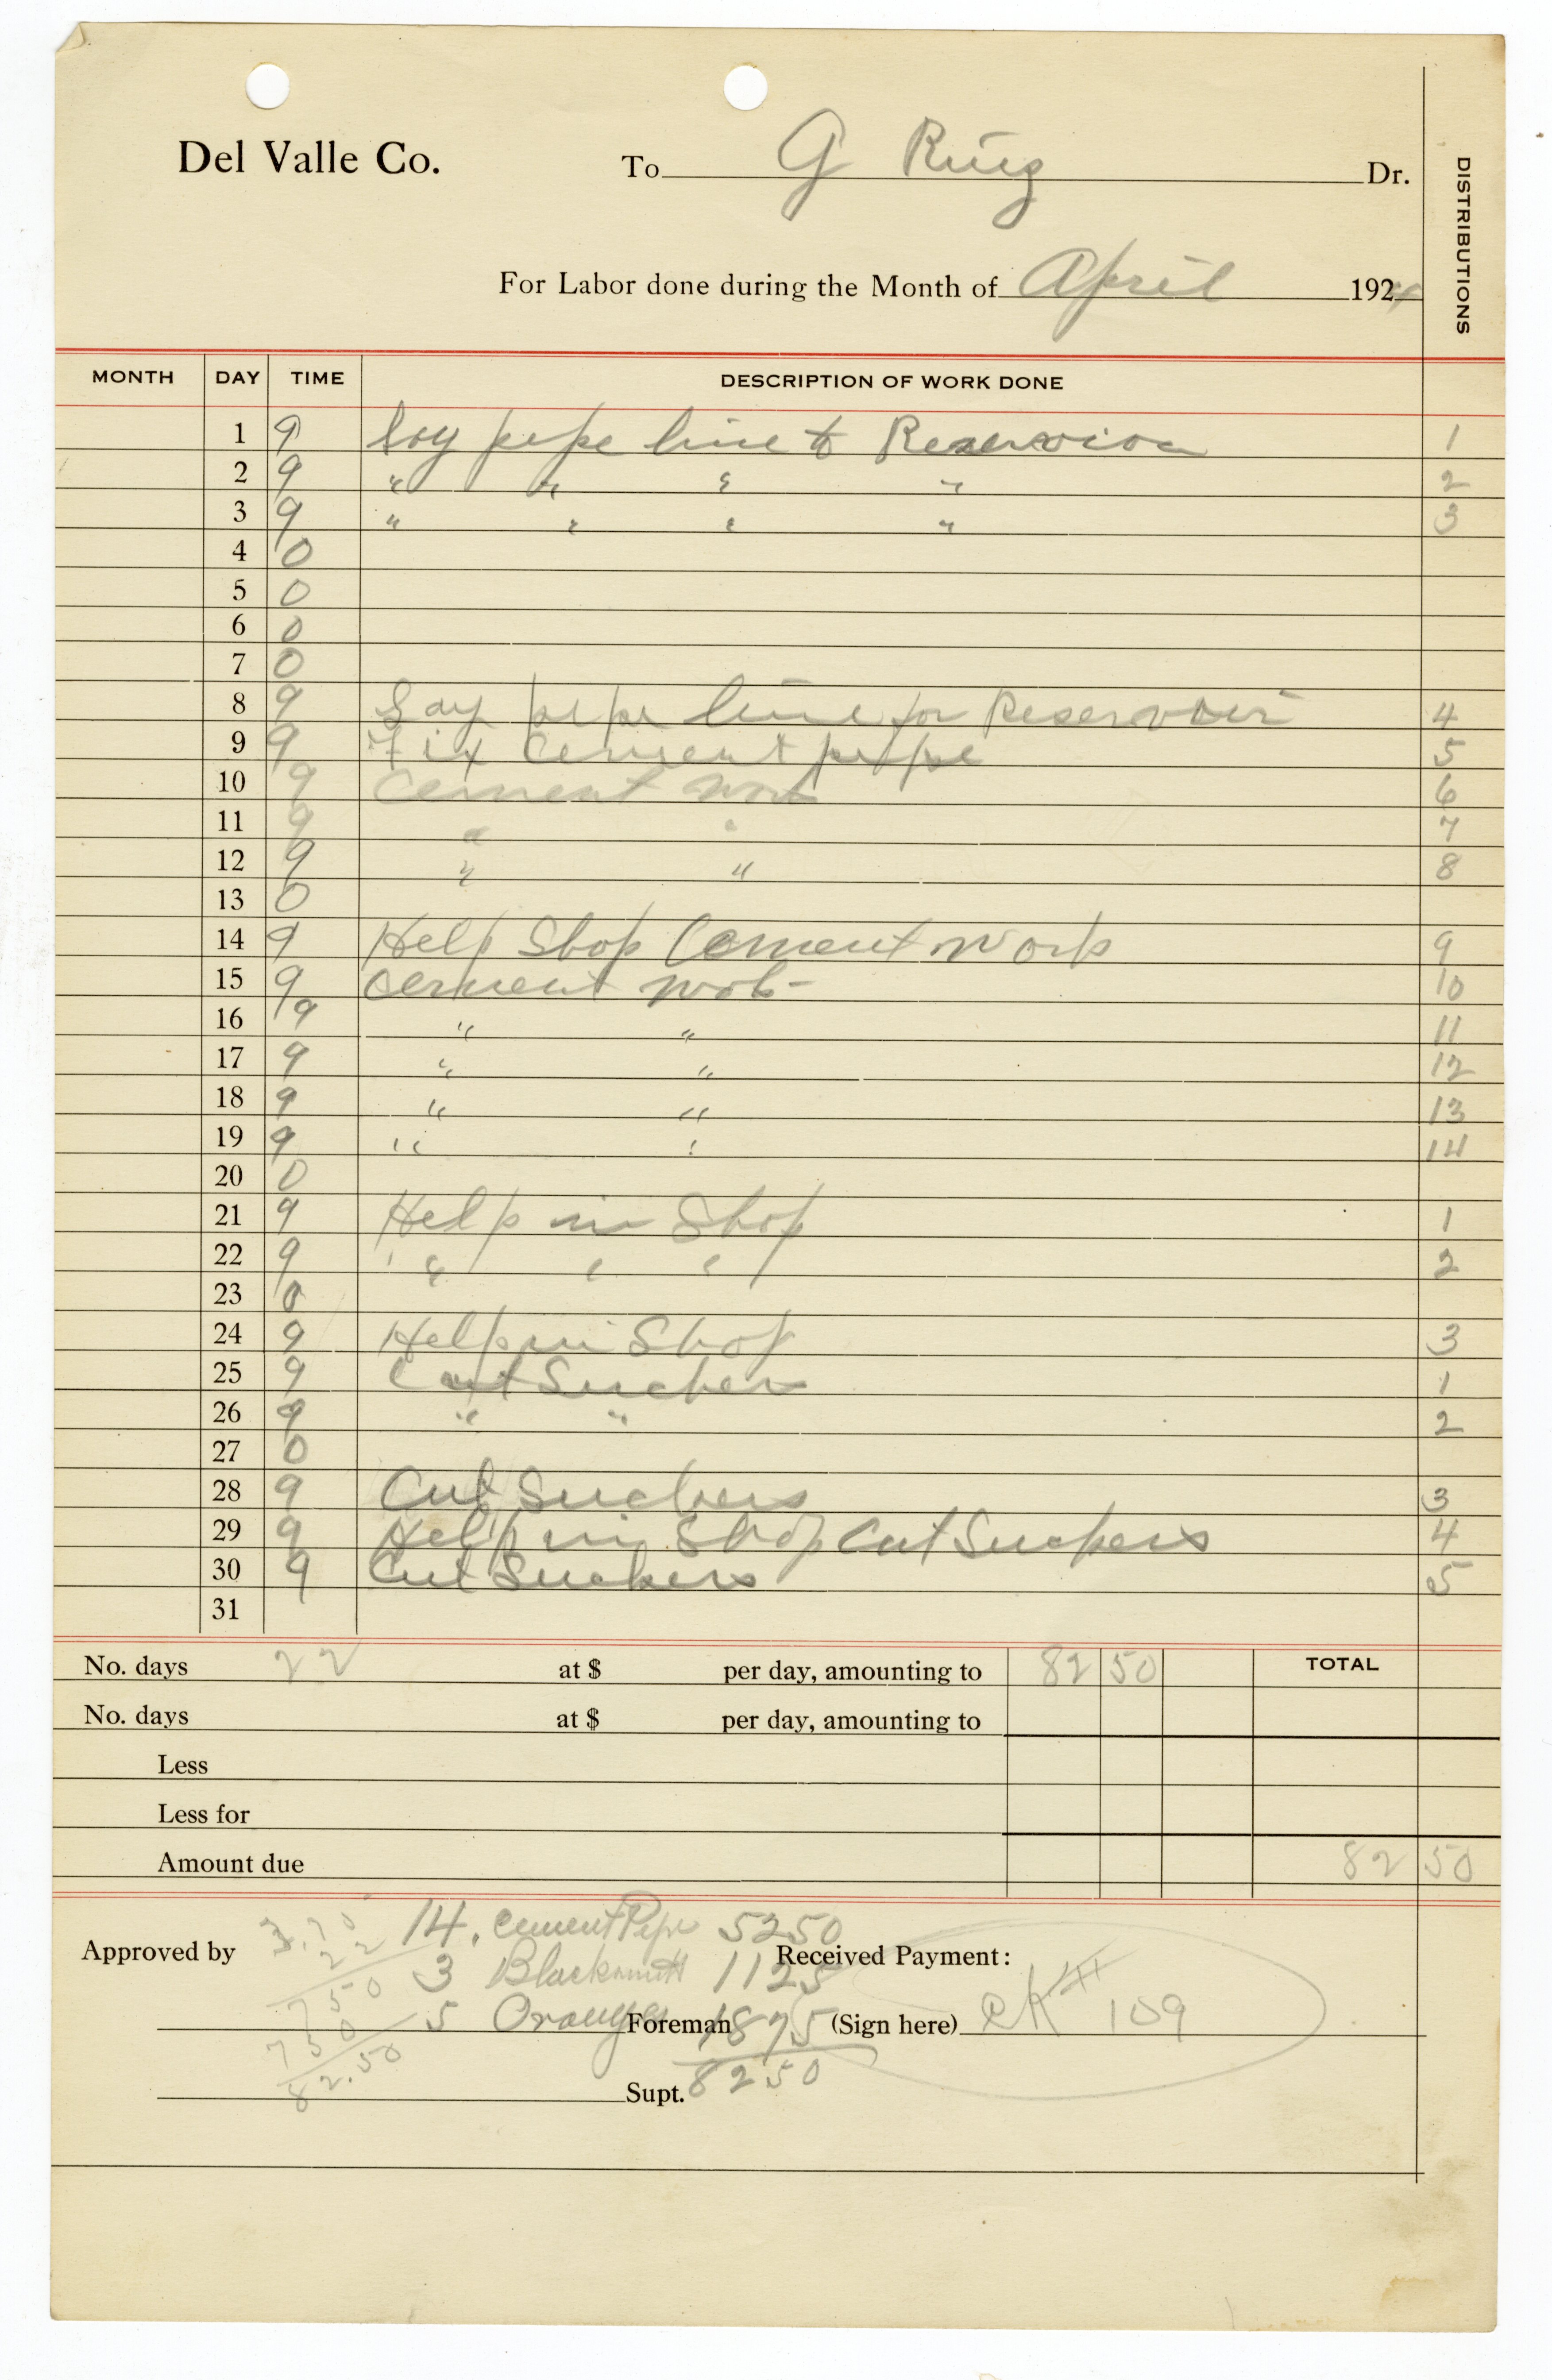 Del Valle Co. To G Ruiz Dr.
DISTRIBUTIONS
For Labor done during the Month of April 1924
MONTH DAY TIME DESCRIPTION OF WORK DONE
1 9 Lay pipe line to Reservoir 1
2 9 " " " " 2
3 9 " " " " 3
4 0
5 0
6 0
7 0
8 9 Lay pipe line for Reservoir 4
9 9 Fix Cement pipe 5
10 9 Cement work 6
11 9 " " 7
12 9 " " 8
13 0
14 9 Help Shop Cement Work 9
15 9 Cement work 10
16 9 " " 11
17 9 " " 12
18 9 " " 13
19 9 " " 14
20 0
21 9 Help in Shop 1
22 9 " " " 2
23 0
24 9 Help in Shop 3
25 9 Cut Suckers 1
26 9 " " 2
27 0
28 9 Cut Suckers 3
29 9 Help in Shop Cut Suckers 4
30 9 Cut Suckers 5
31
No. days 22 at $ per day, amounting to 82 50 TOTAL
No. days at $ per day, amounting to
Less
Less for
Amount due 82 50
14. Cement Pipe 5250
22
Approved by Received Payment:
3 Blacksmith 1125
750
5 Oranges 1875
Foreman (Sign here) CK# 109
750
82.50
Supt. 8250